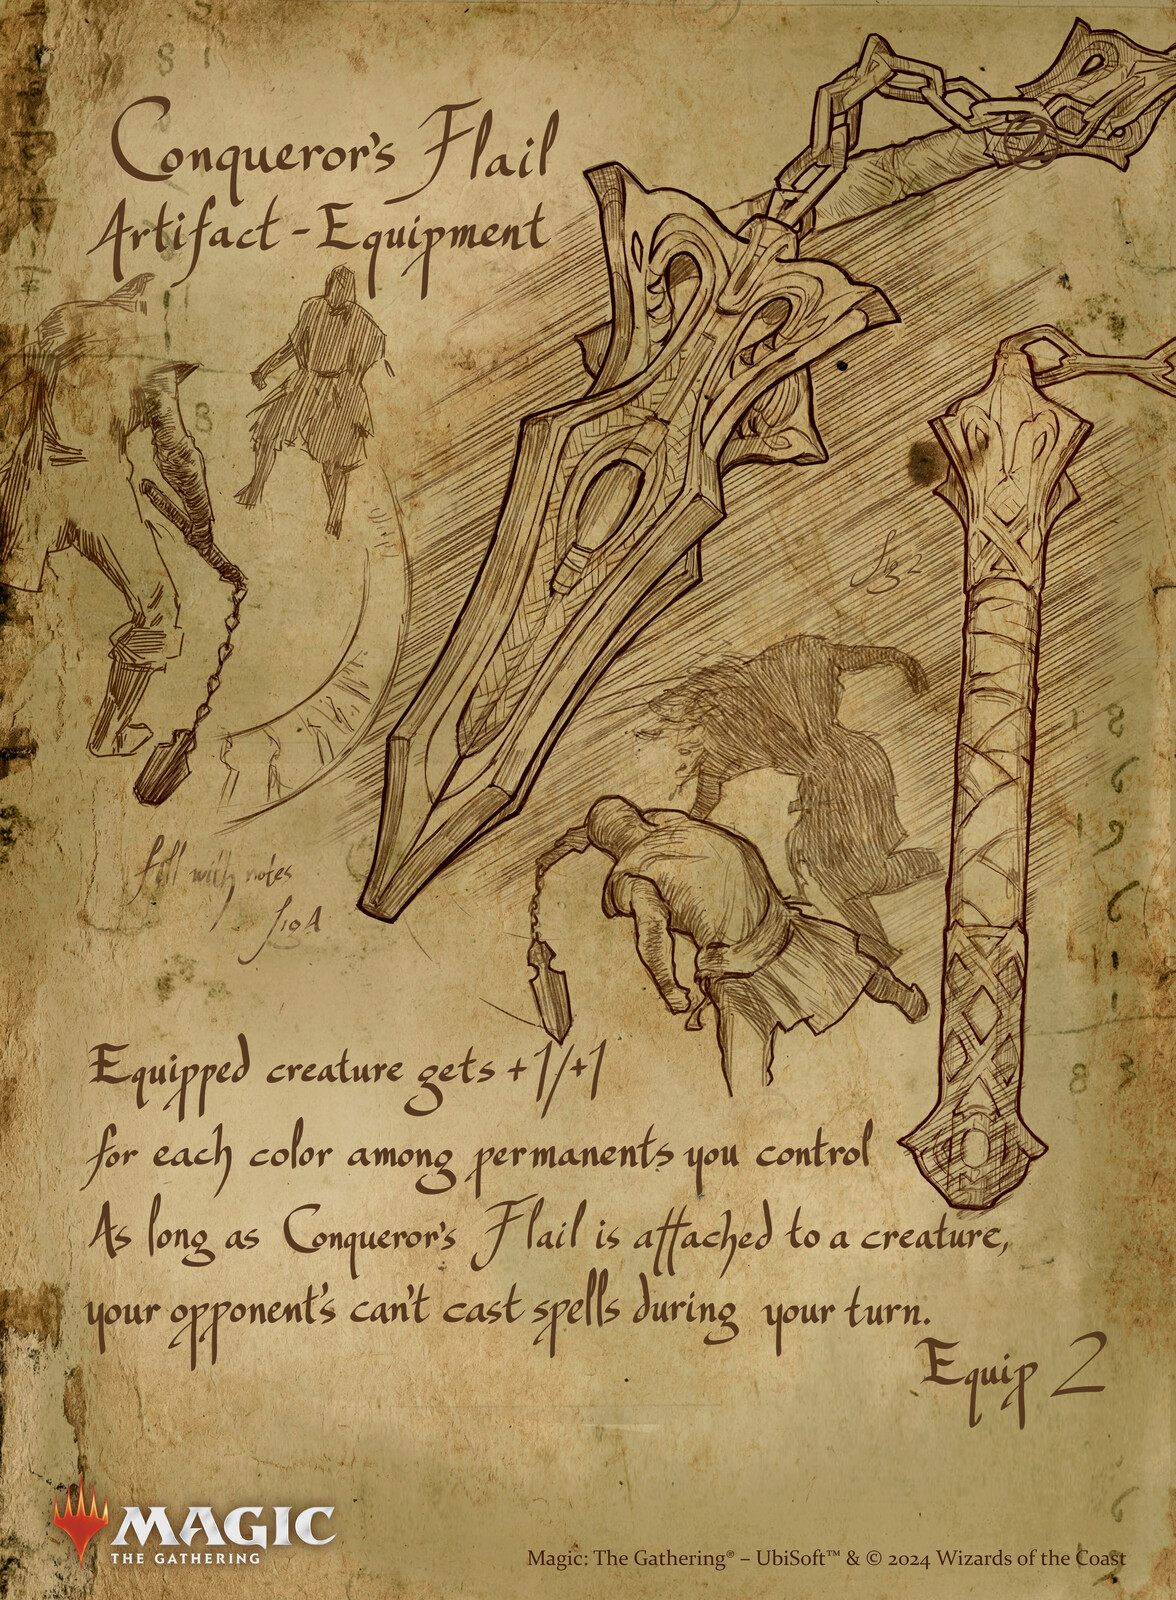 Conqueror's Flail
Artifact - Equipment
fig 2
fill with notes
fig A
Equipped creature gets +1/+1
for each color among permanents you control
As long as Conqueror's Flail is attached to a creature,
your opponent's can't cast spells during your turn.
Equip 2
MAGIC
THE GATHERING
Magic: The Gathering® – UbiSoft™ & © 2024 Wizards of the Coast